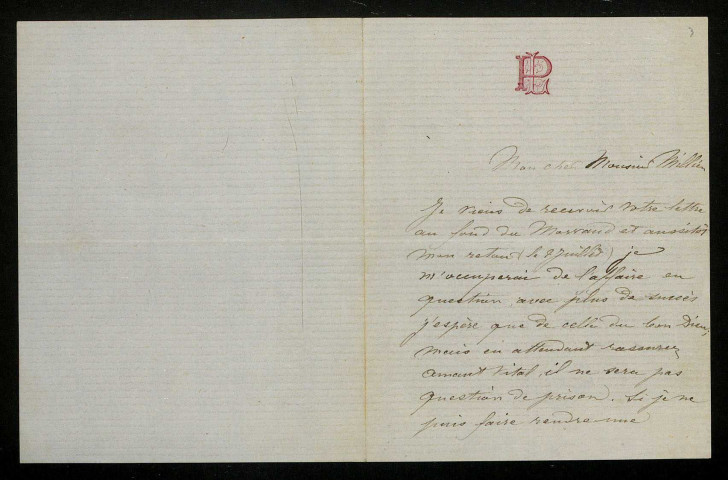 3
PL
Mon cher Monsieur Millien
Je viens de recevoir votre lettre
au fond du Morvand et aussitôt
mon retour (le 8 Juillet) je
m'occuperai de l'affaire en
question avec plus de succès
j'espère que de celui du bon Dieu,
mais en attendant rassurez
Amant Vital, il ne sera pas
question de prison. Si je ne
puis faire rendre une